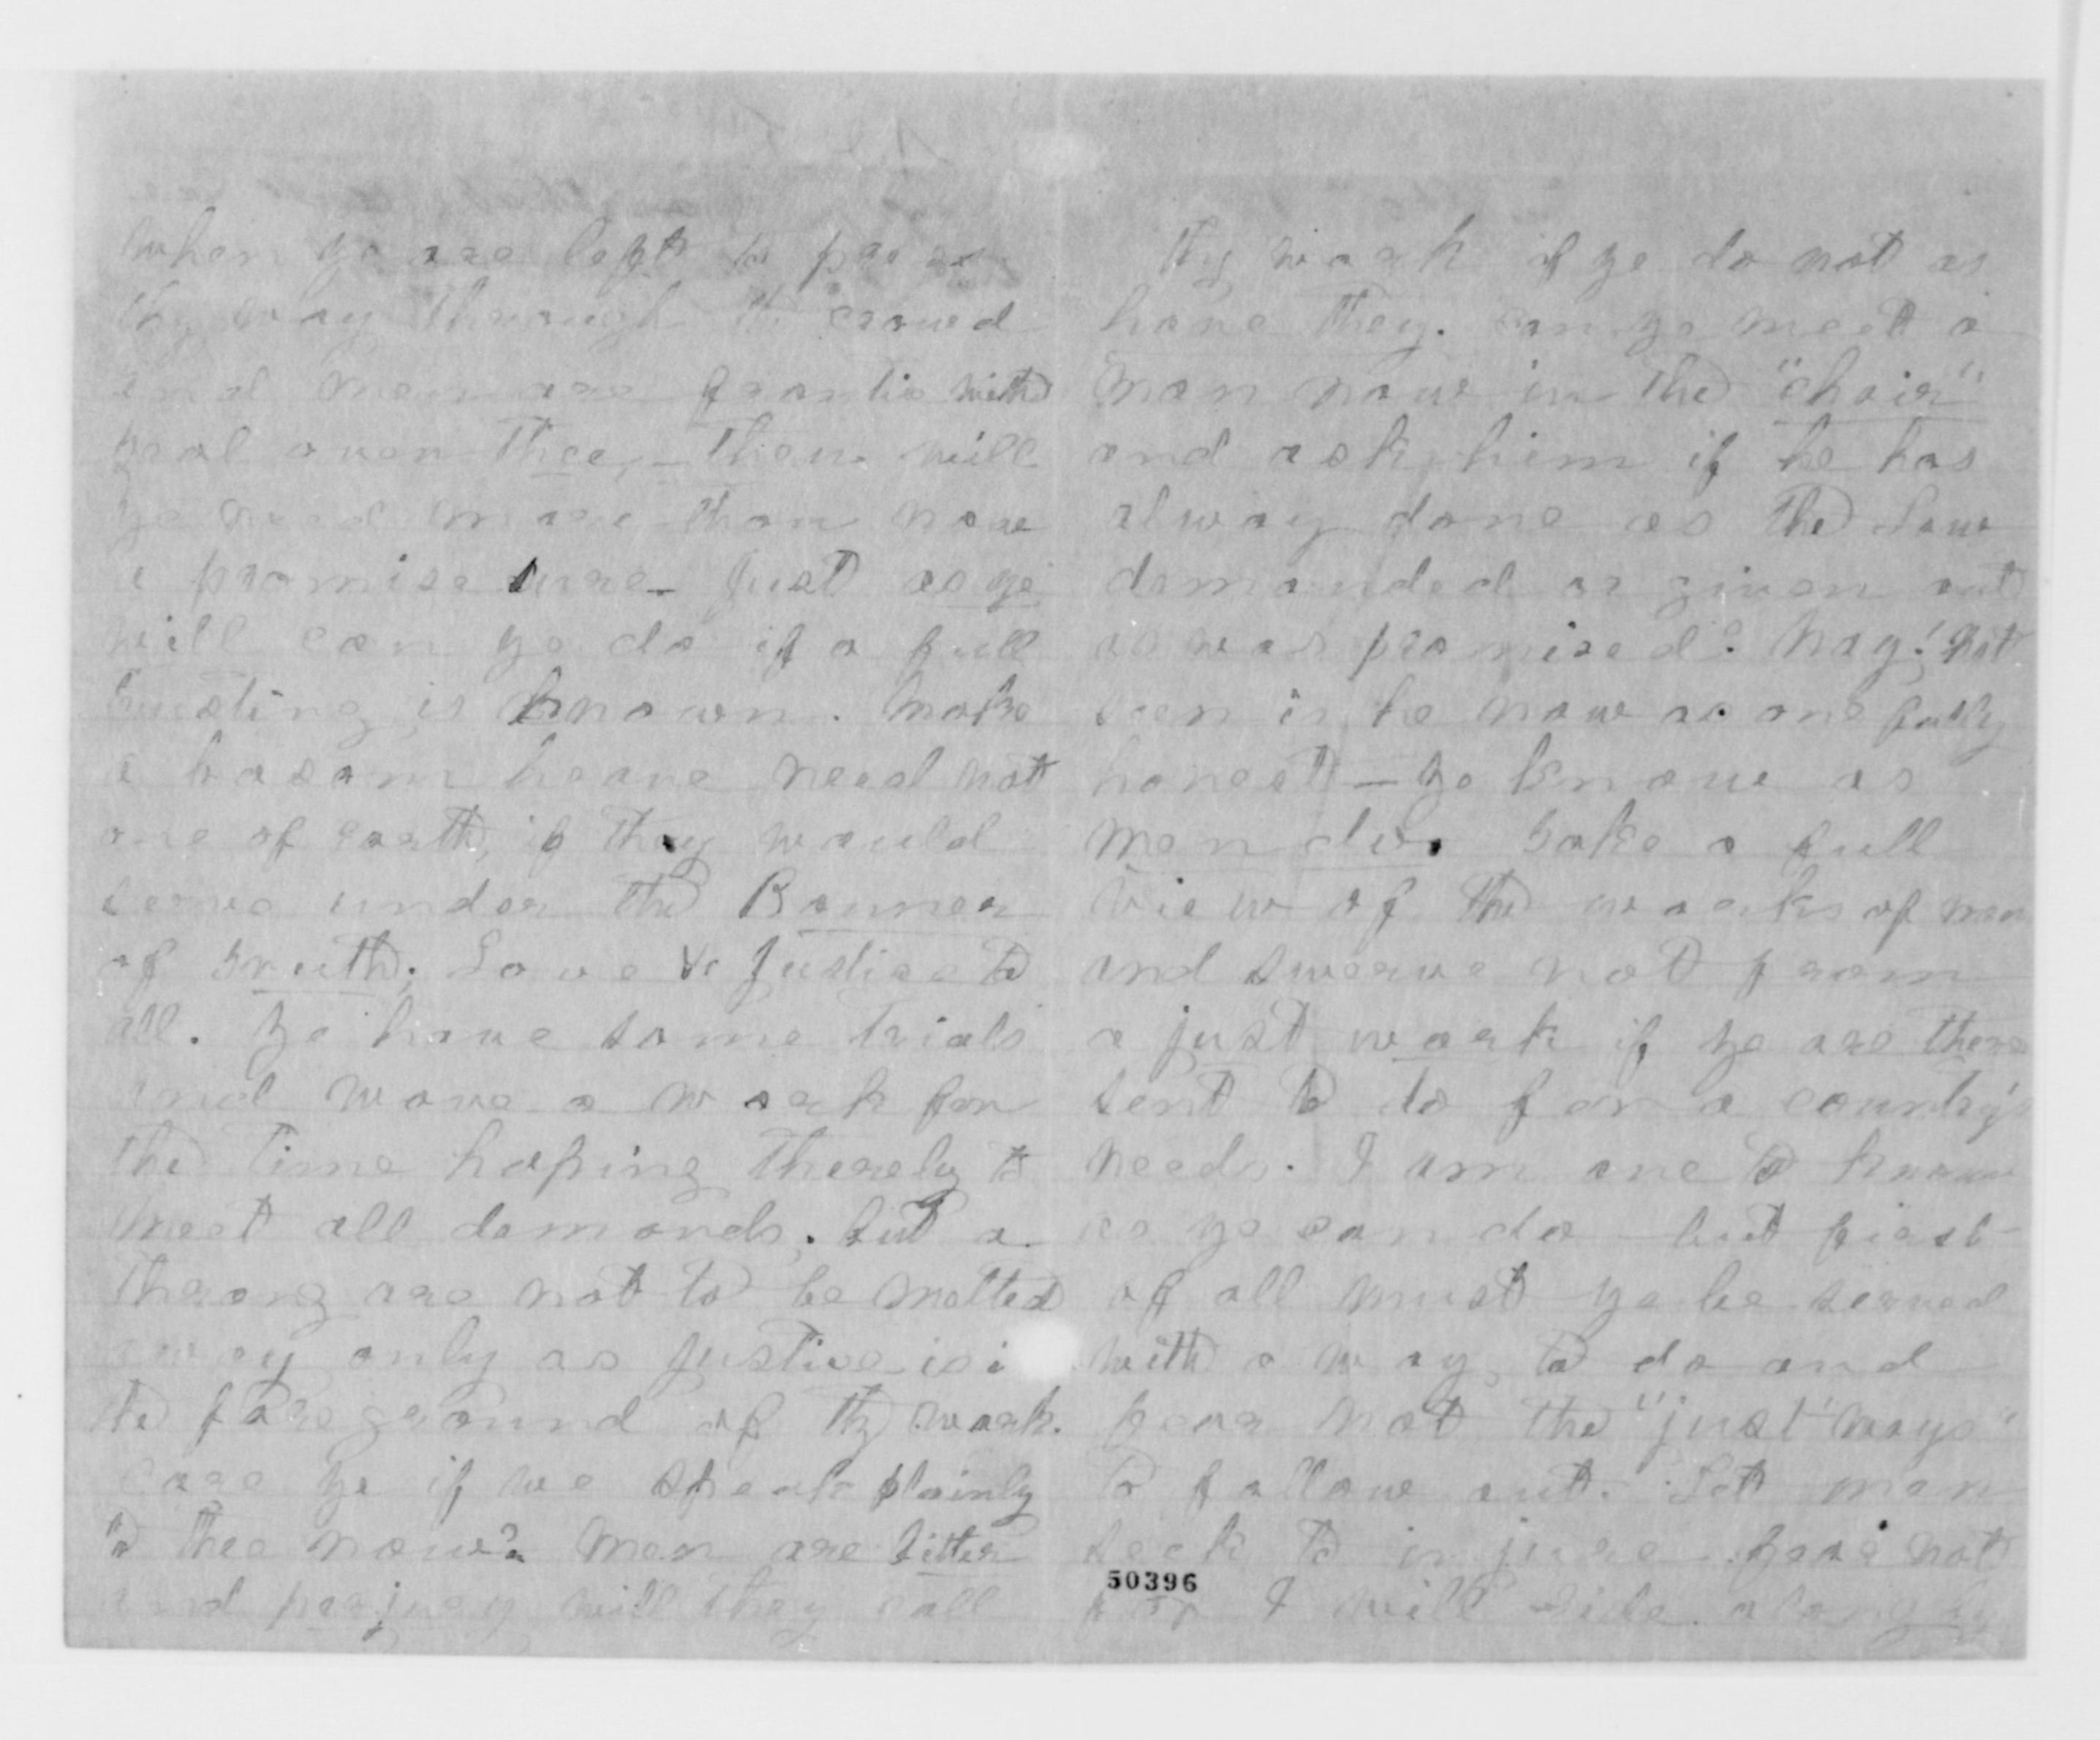 when ye are left to press
thy way through the crowd
and men are frantic with
zeal over thee, - then will
ye need more than now
a promise sure - Just as ye
will can ye do if a full
trusting is known. Make
a bosom heave need not
one of earth, if they would
serve under the Banner
of Truth, Love & Justice to
all. Ye have some trials
and wove a work for
the time hoping thereby to
meet all demands. But a
throng are not to be melted
away only as Justice is i
the foreground of thy work.
Care ye if we speak plainly
to thee now? Men are bitter
and perjury will they call
thy work if ye do not as
have they. Can ye meet a
man now in the "chair"
and ask him if he has
alway done as the Law
demanded or given out
as was promised? Nay! Not
seen is he now as one fully
honest - Ye know as
men do. Take a full
view of the works of men
and swerve not from
a just work if ye are there
sent to do for a country's
needs. I am one to know
as ye can do - but first
of all must ye be served
with a way to do and
fear not the "just ways"
to follow out. Let men
seek to injure - fear not
50396
for I will ride along